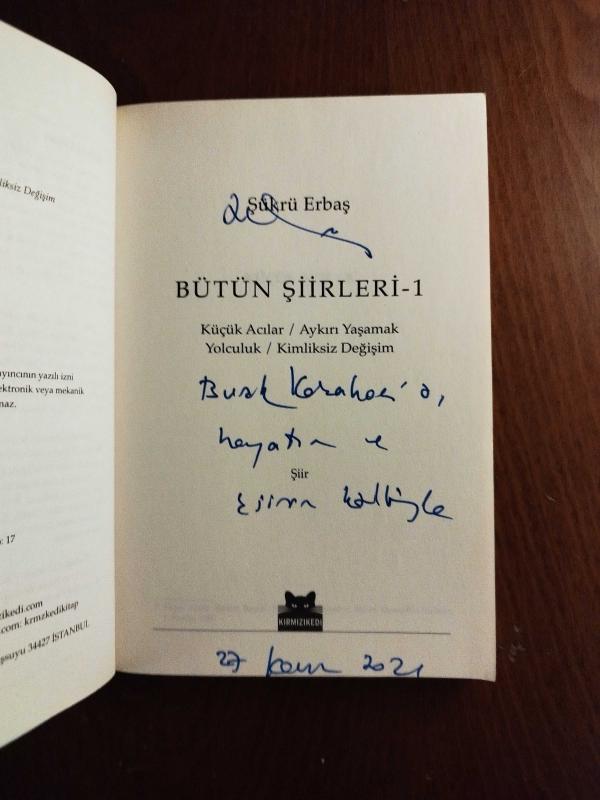 liksiz Değişim
ayıncının yazılı izni
ektronik veya mekanik
maz.
: 17
zikedi.com
com: krmzkedikitap
şsuyu 34427 İSTANBUL
Şükrü Erbaş
BÜTÜN ŞİİRLERİ-1
Küçük Acılar / Aykırı Yaşamak
Yolculuk / Kimliksiz Değişim
Burak
hayatın ve
Şiir
şiirin kalbiyle
KIRMIZIKEDİ
27 Kasım 2021